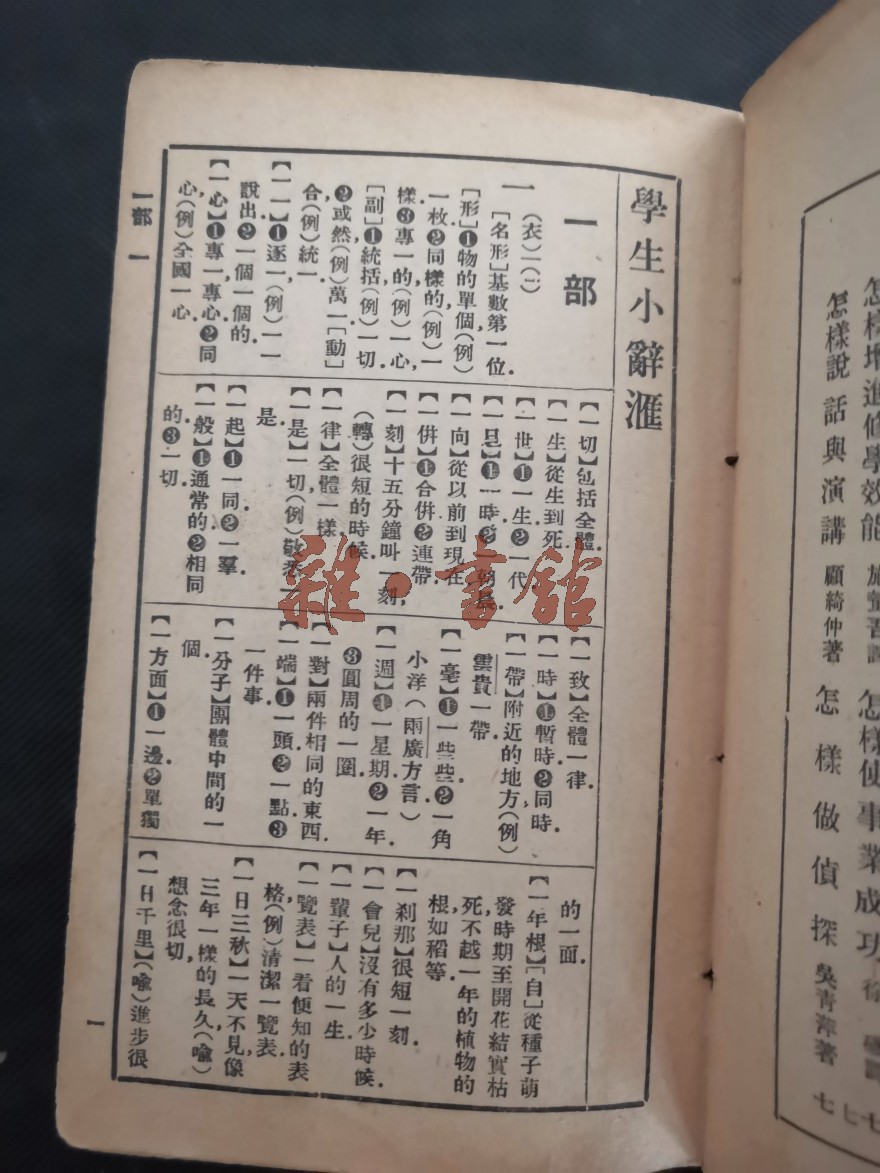 學生小辭滙
一部
一
(衣)ㄧ(ㄧ)
[名形]基數第一位.
[形]❶物的單個(例)
一枚❷同樣的(例)一
樣❸專一的(例)一心,
[副]❶統括(例)一切
❷或然(例)萬一[動]
合(例)統一.
【一一】❶逐一,(例)一一
說出❷一個一個的.
【一心】❶專一,專心❷同
心,(例)全國一心.
【一切】包括全體.
【一生】從生到死.
【一世】❶一生❷一代.
【一旦】❶一時❷朝晨.
【一向】從以前到現在.
【一併】❶合併❷連帶.
【一刻】十五分鐘叫一刻,
(轉)很短的時候.
【一律】全體一樣.
【一是】一切(例)敬悉一
是.
【一起】❶一同❷一羣.
【一般】❶通常的❷相同
的❸一切.
【一致】全體一律.
【一時】❶暫時❷同時.
【一帶】附近的地方(例)
雲貴一帶.
【一毫】❶一些些❷一角
小洋(兩廣方言)
【一週】❶一星期❷一年
❸圓周的一圈.
【一對】兩件相同的東西.
【一端】❶一頭❷一點❸
一件事.
【一分子】團體中間的一
個.
【一方面】❶一邊❷單獨
的一面.
【一年根】[自]從種子萌
發時期至開花結實枯
死,不越一年的植物的
根,如稻等.
【一刹那】很短一刻.
【一會兒】沒有多少時候.
【一輩子】人的一生.
【一覽表】一看便知的表
格,(例)清潔一覽表.
【一日三秋】一天不見,像
三年一樣的長久(喻)
想念很切.
【一日千里】(喻)進步很
一部 一
一
雜·書館
怎樣增進修學效能
怎樣說話與演講 顧綺仲著
怎樣使事業成功
怎樣做偵探 吳青萍著
七七七